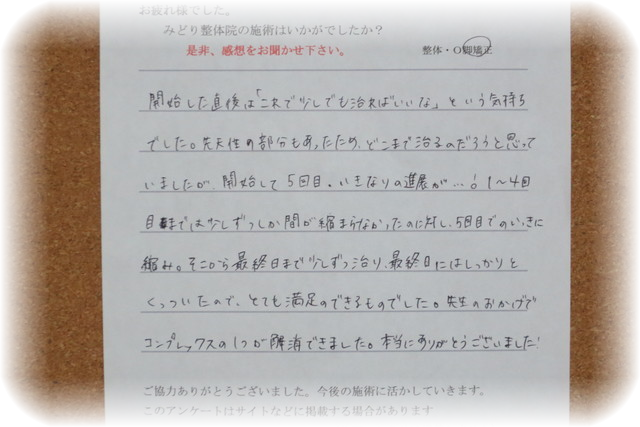 お疲れ様でした。
みどり整体院の施術はいかがでしたか？
是非、感想をお聞かせ下さい。
整体・O脚矯正
開始した直後は「これで少しでも治ればいいな」という気持ち
でした。先天性の部分もあったため、どこまで治るのだろうと思って
いましたが、開始して5回目、いきなりの進展が…！1～4回
目まででは少しずつしか間が縮まらなかったのに対し、5回目でのいっきに
縮み。そこから最終日まで少しずつ治り、最終日にはしっかりと
くっついたので、とても満足のできるものでした。先生のおかげで
コンプレックスの1つが解消できました。本当にありがとうございました!
ご協力ありがとうございました。今後の施術に活かしていきます。
このアンケートはサイトなどに掲載する場合があります